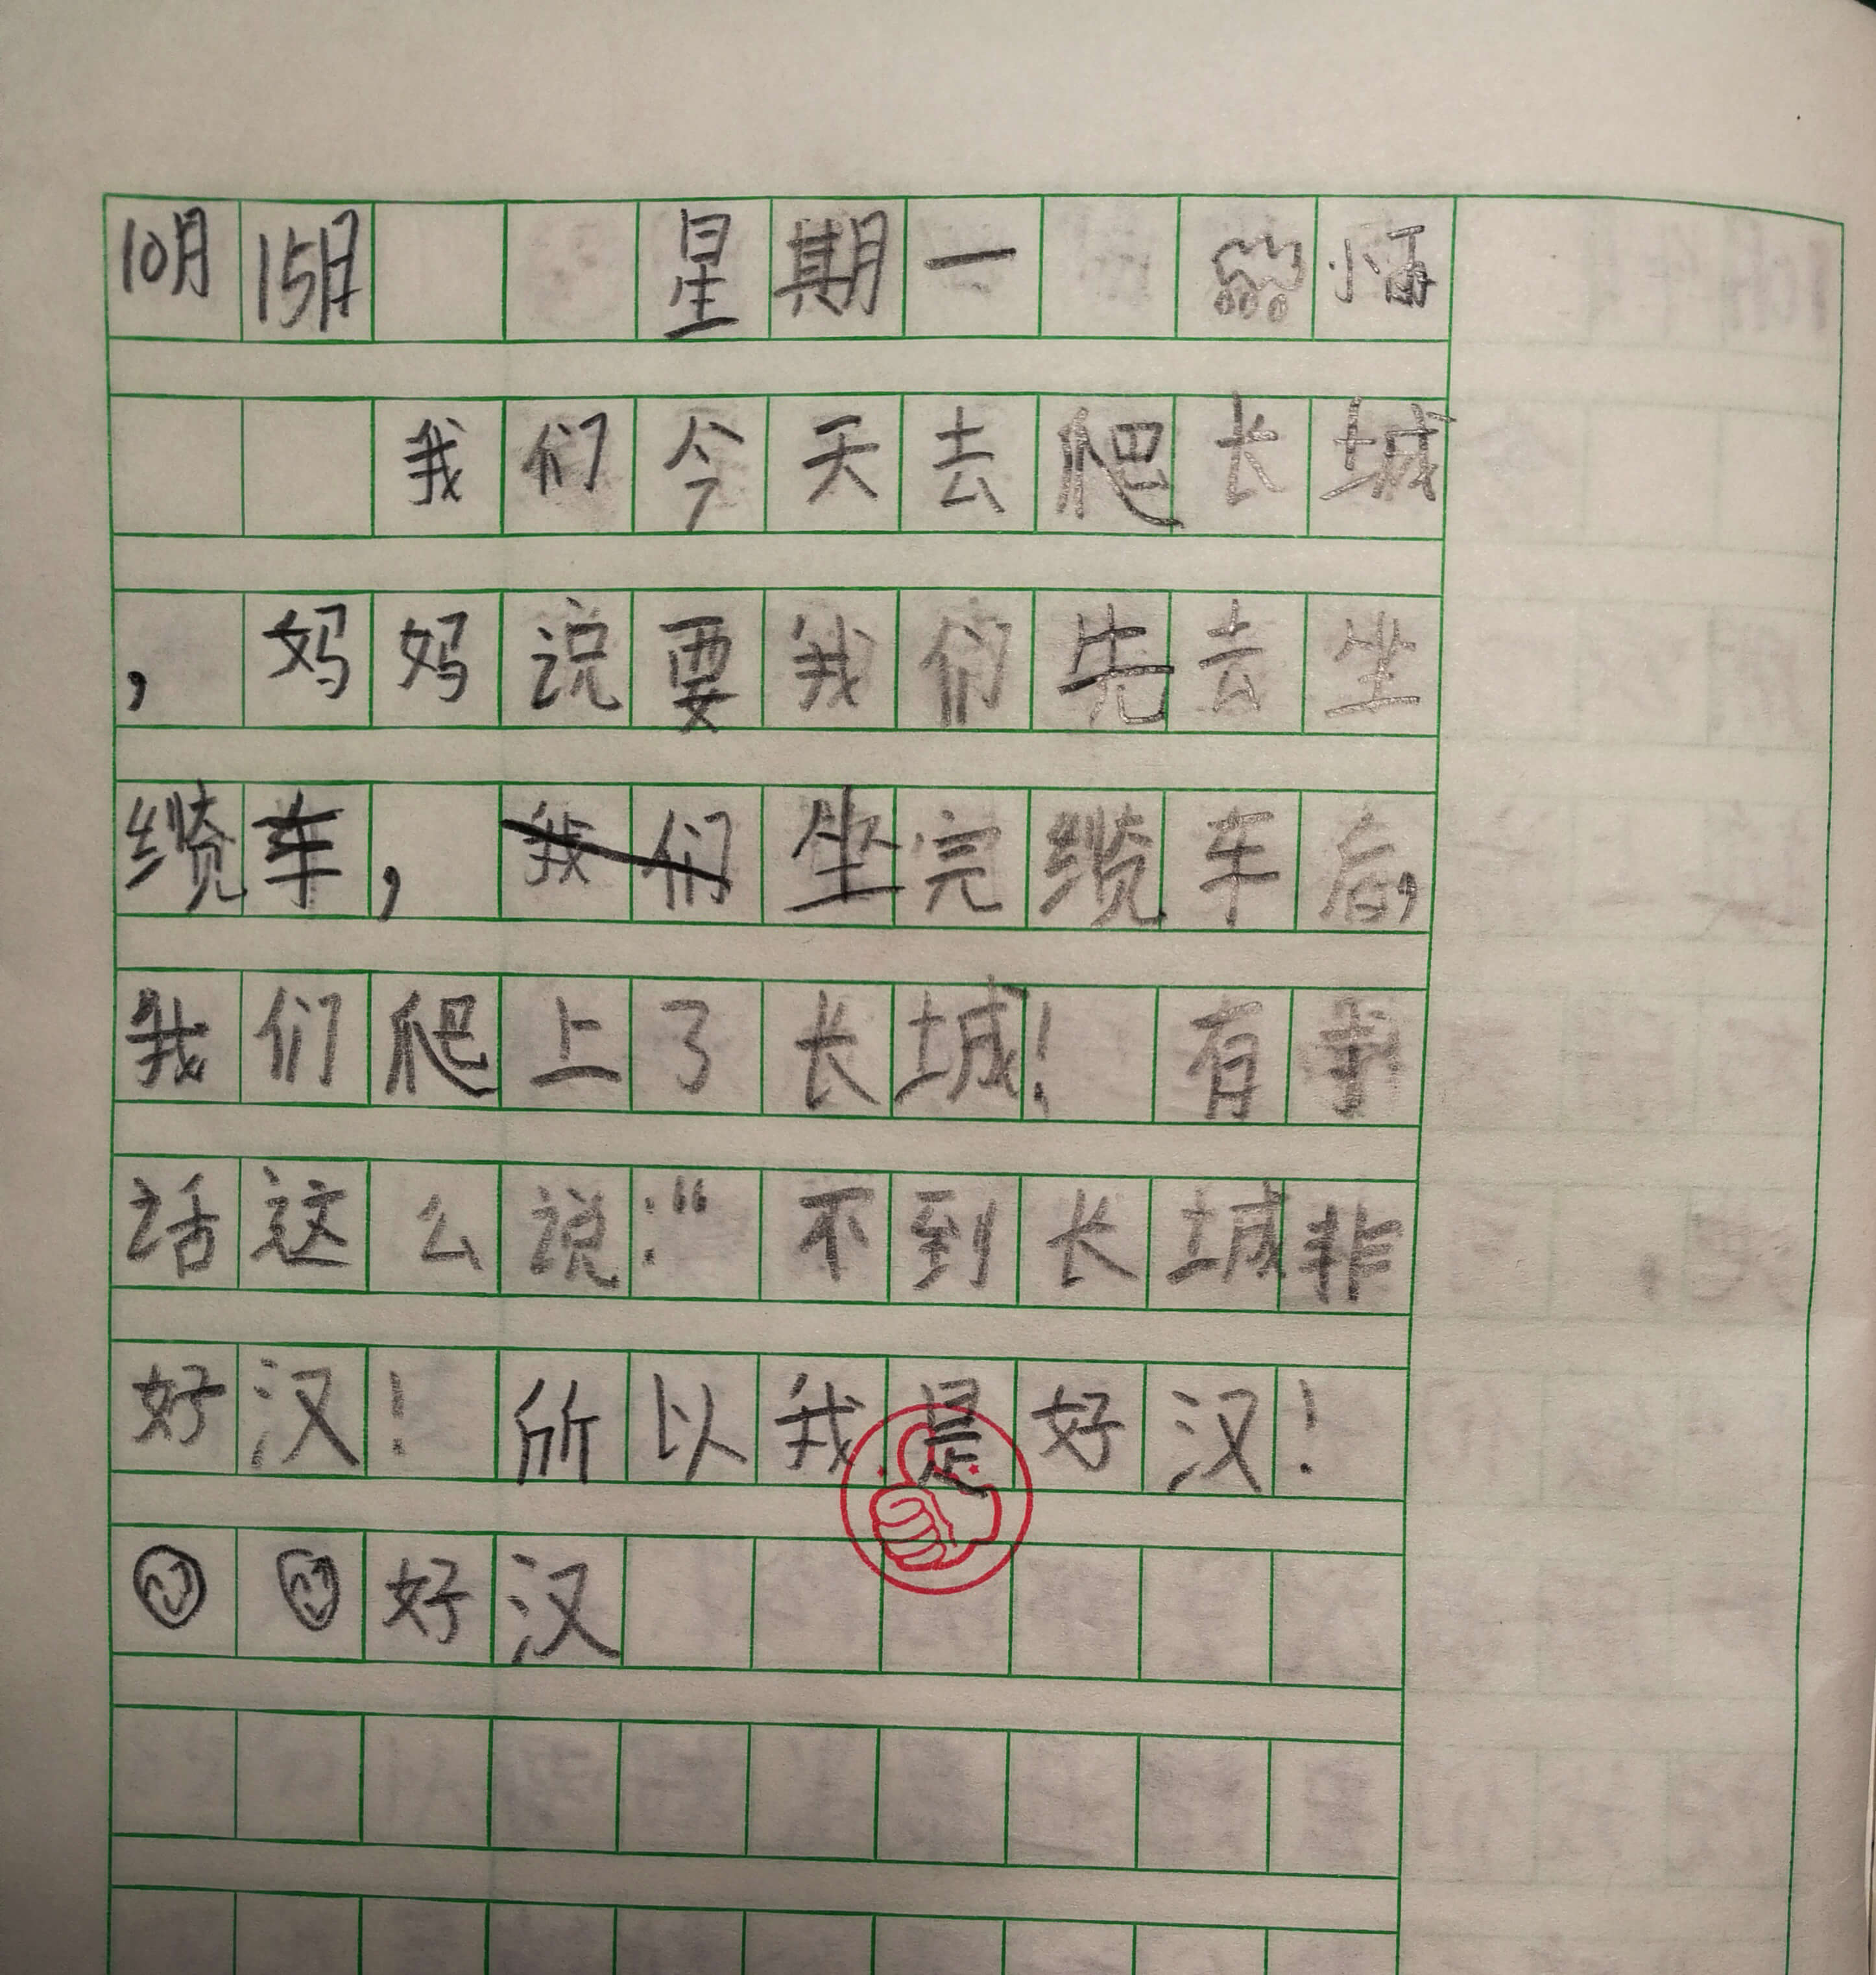 10月15日 星期一 小雨
我们今天去爬长城
，妈妈说要我们先去坐
缆车，我们坐完缆车后，
我们爬上了长城！有
话这么说：“不到长城非
好汉！所以我是好汉！
好汉